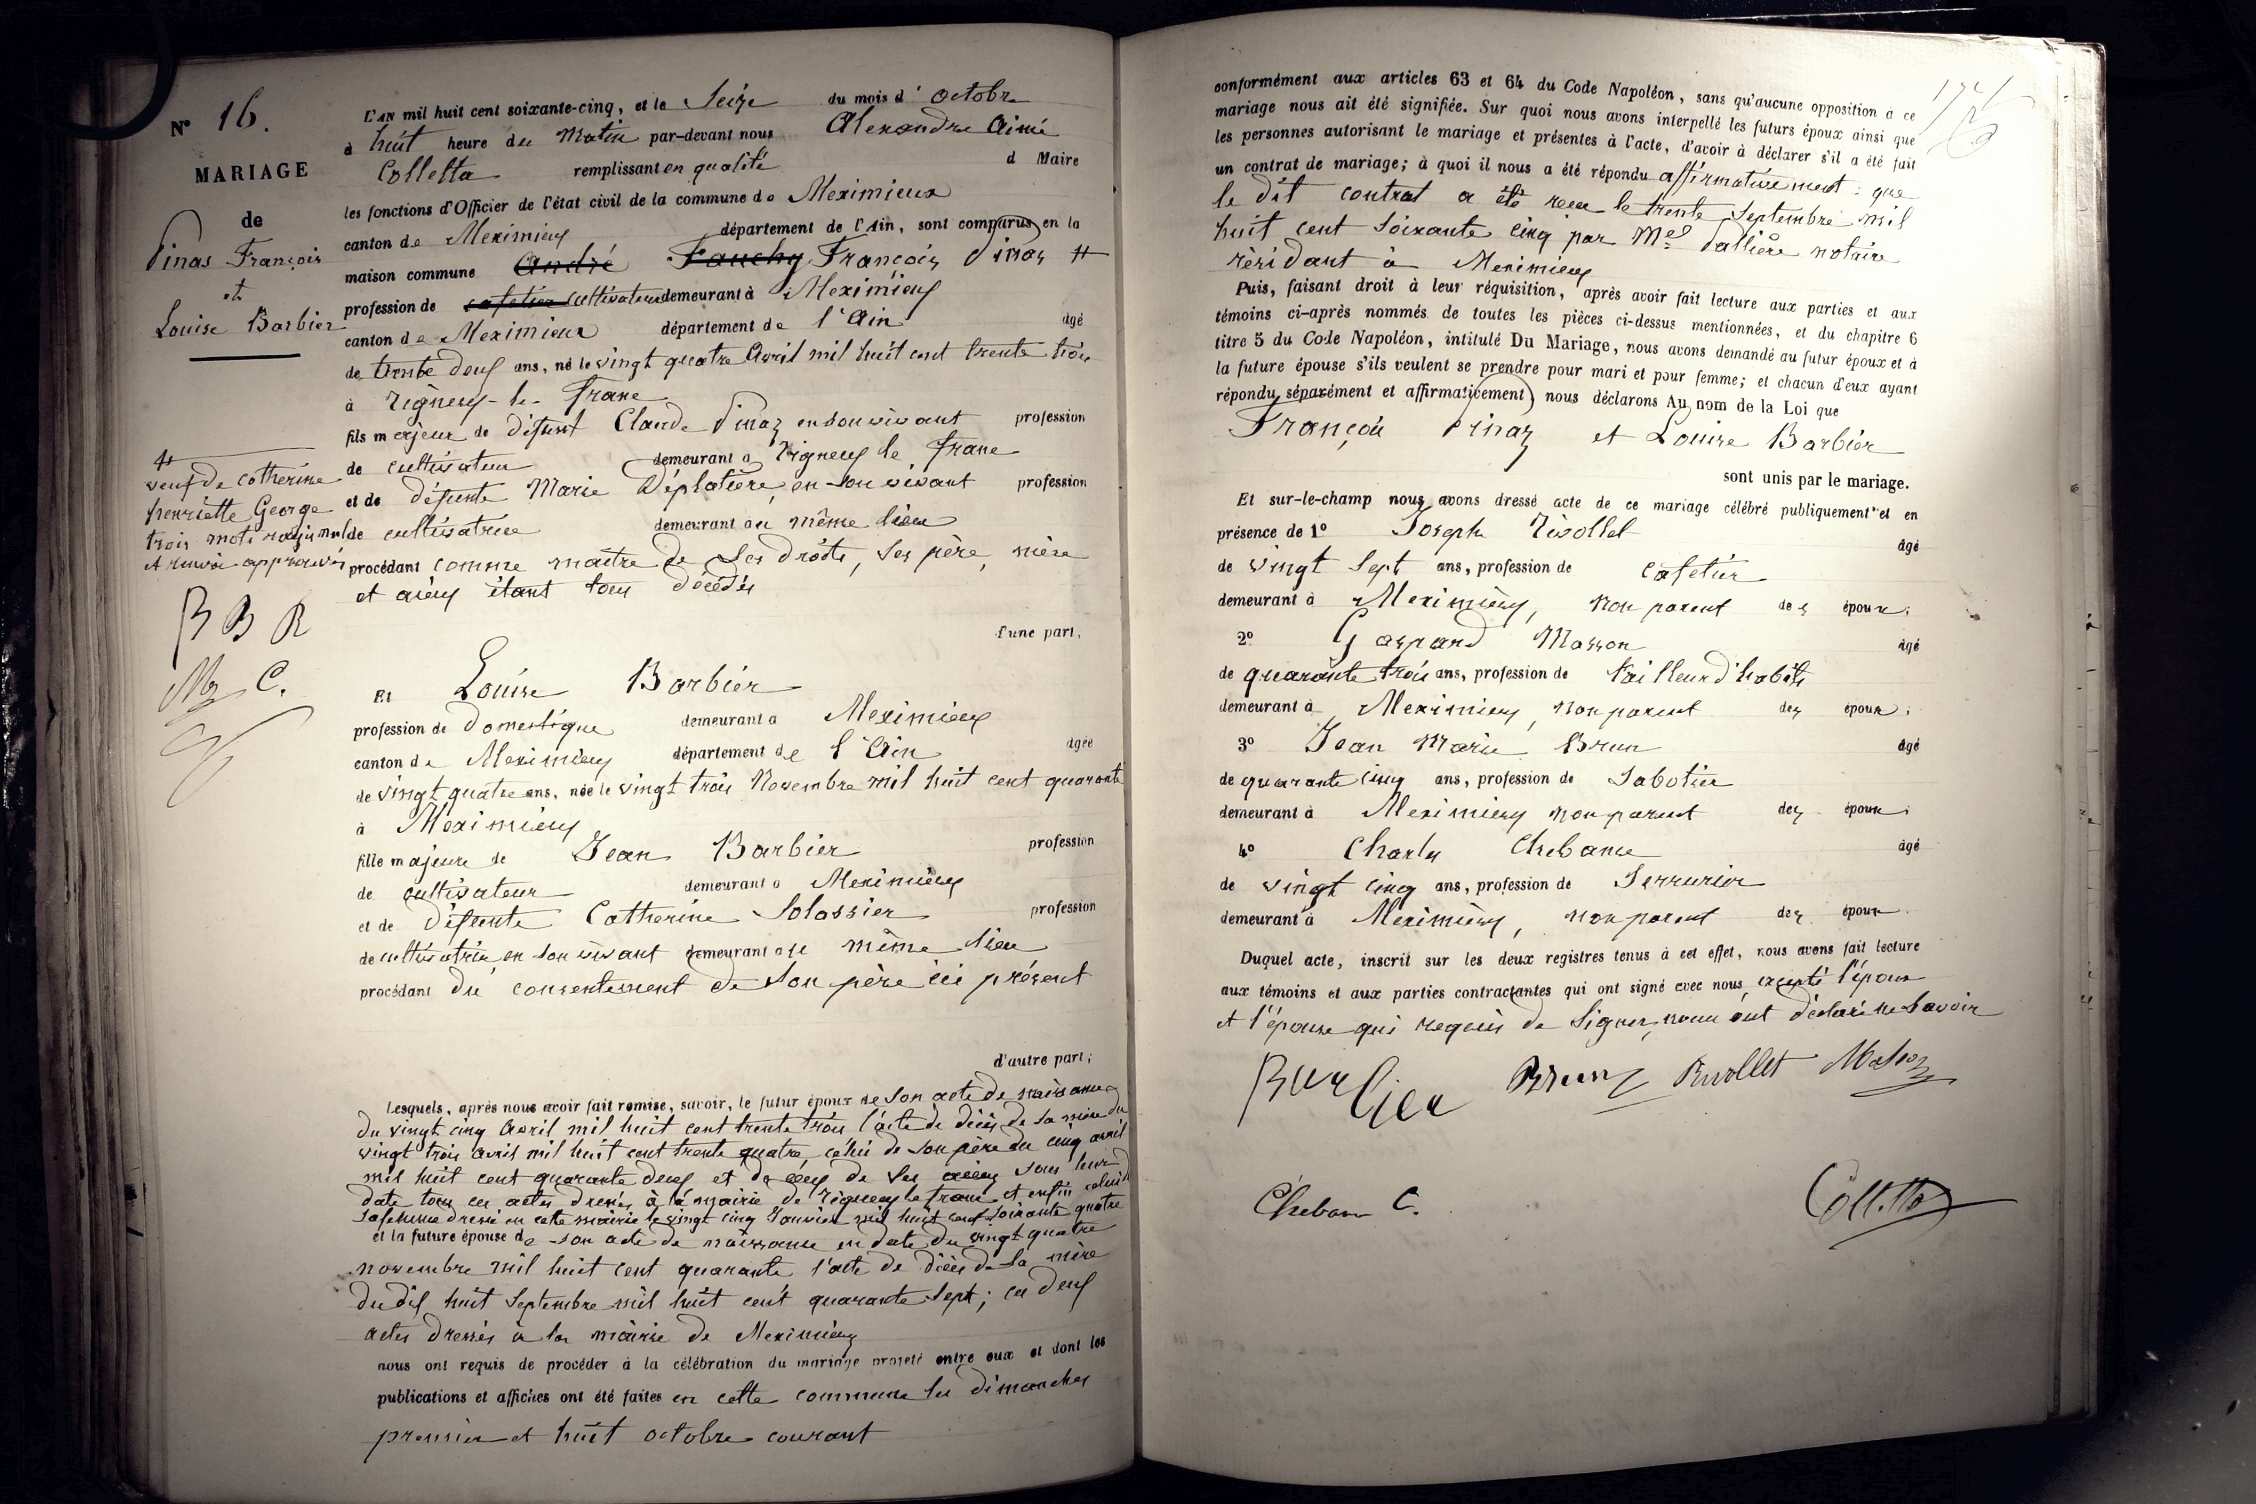 N° 16.
MARIAGE
de
Pinas François
et
Louise Barbier
L'AN mil huit cent soixante-cinq, et le Seize du mois d'octobre
à huit heure du Matin par-devant nous Alexandre Aimé
Colletta remplissant en qualité d Maire
les fonctions d'Officier de l'état civil de la commune de Meximieux
canton de Meximieux département de l'Ain, sont comparus en la
maison commune André Fauchy François Pinaz #
profession de cafetier cultivateur demeurant à Meximieux
canton de Meximieux département de l'Ain âgé
de trente deux ans, né le vingt quatre Avril mil huit cent trente trois
à Rigneux-le-franc
fils majeur de défunt Claude Pinaz en son vivant profession
de cultivateur demeurant à Rigneux le franc
et de défunte Marie Déplatière, en son vivant profession
de cultivatrice demeurant au même lieu
procédant comme maître de ses droits, ses père, mère
et aïeux étant tous décédés
d'une part,
#
veuf de Catherine
henriette George
trois mots rayés nuls
et renvoi approuvés
B B R
M C.
Et Louise Barbier
profession de Domestique demeurant à Meximieux
canton de Meximieux département de l'Ain âgée
de vingt quatre ans, née le vingt trois Novembre mil huit cent quarante
à Meximieux
fille majeure de Jean Barbier profession
de cultivateur demeurant à Meximieux
et de Défunte Catherine Solassier profession
de cultivatrice en son vivant demeurant au même lieu
procédant du consentement de son père ici présent
d'autre part;
Lesquels, après nous avoir fait remise, savoir, le futur époux de son acte de naissance
du vingt cinq Avril mil huit cent trente trois l'acte de décès de sa mère du
vingt trois avril mil huit cent trente quatre, celui de son père du cinq avril
mil huit cent quarante deux et de ceux de ses aïeux sous leur
date tous ces actes dressés à la mairie de Rigneux le franc et enfin celui de
sa femme dressé en cette mairie le vingt cinq Janvier mil huit cent soixante quatre
et la future épouse de son acte de naissance en date du vingt quatre
novembre mil huit cent quarante l'acte de décès de sa mère
du dix huit Septembre mil huit cent quarante sept; ces deux
actes dressés à la mairie de Meximieux
nous ont requis de procéder à la célébration du mariage projeté entre eux et dont les
publications et affiches ont été faites en cette commune les dimanches
premier et huit octobre courant
conformément aux articles 63 et 64 du Code Napoléon, sans qu'aucune opposition à ce
mariage nous ait été signifiée. Sur quoi nous avons interpellé les futurs époux ainsi que
les personnes autorisant le mariage et présentes à l'acte, d'avoir à déclarer s'il a été fait
un contrat de mariage; à quoi il nous a été répondu affirmativement: que
le dit contrat a été reçu le trente Septembre mil
huit cent soixante cinq par Me Pallière notaire
résidant à Meximieux
Puis, faisant droit à leur réquisition, après avoir fait lecture aux parties et aux
témoins ci-après nommés de toutes les pièces ci-dessus mentionnées, et du chapitre 6
titre 5 du Code Napoléon, intitulé Du Mariage, nous avons demandé au futur époux et à
la future épouse s'ils veulent se prendre pour mari et pour femme; et chacun d'eux ayant
répondu séparément et affirmativement, nous déclarons Au nom de la Loi que
François Pinaz et Louise Barbier
sont unis par le mariage.
Et sur-le-champ nous avons dressé acte de ce mariage célébré publiquement et en
présence de 1° Joseph Rivollet âgé
de vingt sept ans, profession de cafetier
demeurant à Meximieux, non parent des époux;
2° Gaspard Masson âgé
de quarante trois ans, profession de tailleur d'habits
demeurant à Meximieux, non parent des époux;
3° Jean Marie Brun âgé
de quarante cinq ans, profession de Sabotier
demeurant à Meximieux non parent des époux;
4° Charles Chebance âgé
de vingt cinq ans, profession de Serrurier
demeurant à Meximieux, non parent des époux.
Duquel acte, inscrit sur les deux registres tenus à cet effet, nous avons fait lecture
aux témoins et aux parties contractantes qui ont signé avec nous, excepté l'époux
et l'épouse qui requis de signer, nous ont déclaré ne savoir
Barbier Brun Rivollet Masson
Chebance C. Colletta